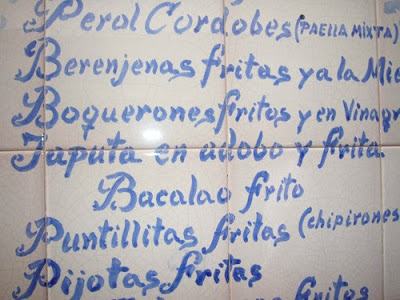 Perol Cordobes (PAELLA MIXTA)
Berenjenas fritas y a la Mie
Boquerones fritos y en Vinagr
Japuta en adobo y frita
Bacalao frito
Puntillitas fritas (chipirones
Pijotas fritas
fritos